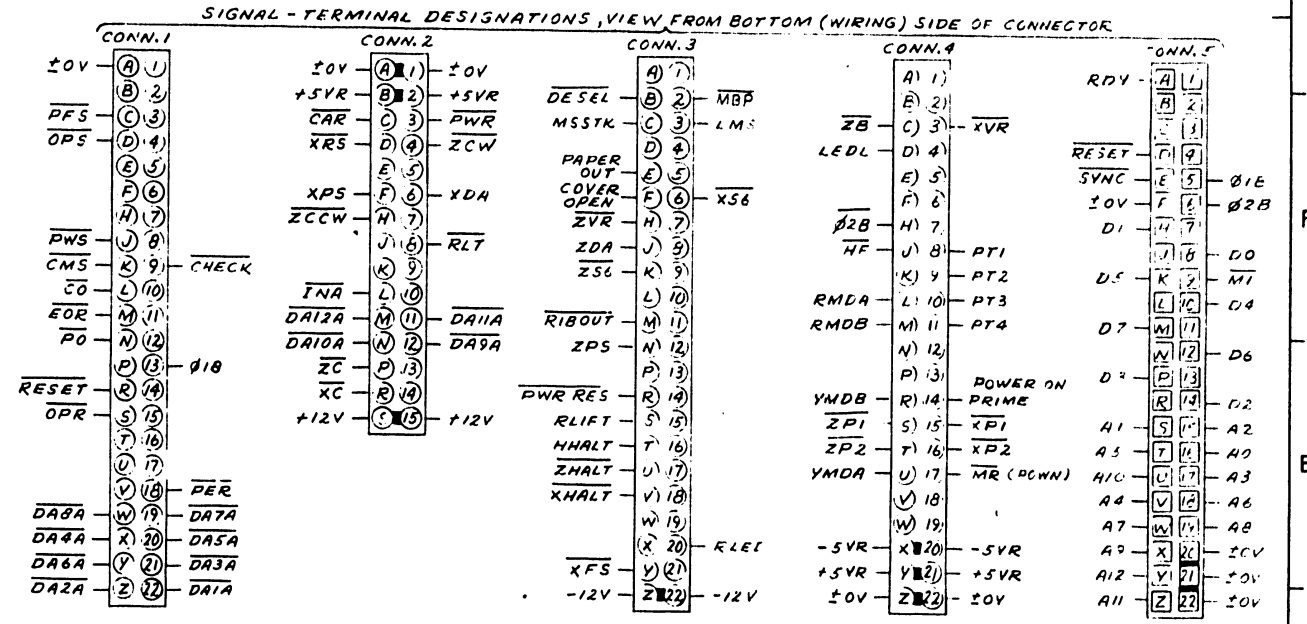 SIGNAL-TERMINAL DESIGNATIONS, VIEW FROM BOTTOM (WIRING) SIDE OF CONNECTOR
CONN.1
±0V A 1
B 2
PFS C 3
OPS D 4
E 5
F 6
H 7
PWS J 8
CMS K 9 CHECK
CO L 10
EOR M 11
PO N 12
P 13 Ø1B
RESET R 14
OPR S 15
T 16
U 17
V 18 PER
DA8A W 19 DA7A
DA4A X 20 DA5A
DA6A Y 21 DA3A
DA2A Z 22 DA1A
CONN.2
±0V A 1 ±0V
+5VR B 2 +5VR
CAR C 3 PWR
XRS D 4 ZCW
E 5
XPS F 6 XDA
ZCCW H 7
J 8 RLT
K 9
INA L 10
DA12A M 11 DA11A
DA10A N 12 DA9A
ZC P 13
XC R 14
+12V S 15 +12V
CONN.3
A 1
DESEL B 2 MBP
MSSTK C 3 LMS
D 4
PAPER
OUT E 5
COVER
OPEN F 6 XS6
ZVR H 7
ZDA J 8
ZS6 K 9
L 10
RIBOUT M 11
ZPS N 12
P 13
PWR RES R 14
RLIFT S 15
HHALT T 16
ZHALT U 17
XHALT V 18
W 19
X 20
XFS Y 21
-12V Z 22 -12V
CONN.4
A 1
B 2
ZB C 3 XVR
LEDL D 4
E 5
F 6
Ø2B H 7
HF J 8 PT1
K 9 PT2
RMDA L 10 PT3
RMDB M 11 PT4
N 12
P 13
POWER ON
YMDB R 14 PRIME
ZP1 S 15 XP1
ZP2 T 16 XP2
YMDA U 17 MR (DOWN)
V 18
W 19
-5VR X 20 -5VR
+5VR Y 21 +5VR
±0V Z 22 ±0V
CONN.5
RDY A 1
B 2
3
RESET D 4
SYNC E 5 Ø1B
±0V F 6 Ø2B
D1 H 7
J 8 D0
D5 K 9 M1
L 10 D4
D7 M 11
N 12 D6
P 13
R 14 D2
A1 S 15 A2
A5 T 16 A0
A10 U 17 A3
A4 V 18 A6
A7 W 19 A8
A9 X 20 ±0V
A12 Y 21 ±0V
A11 Z 22 ±0V
F
E